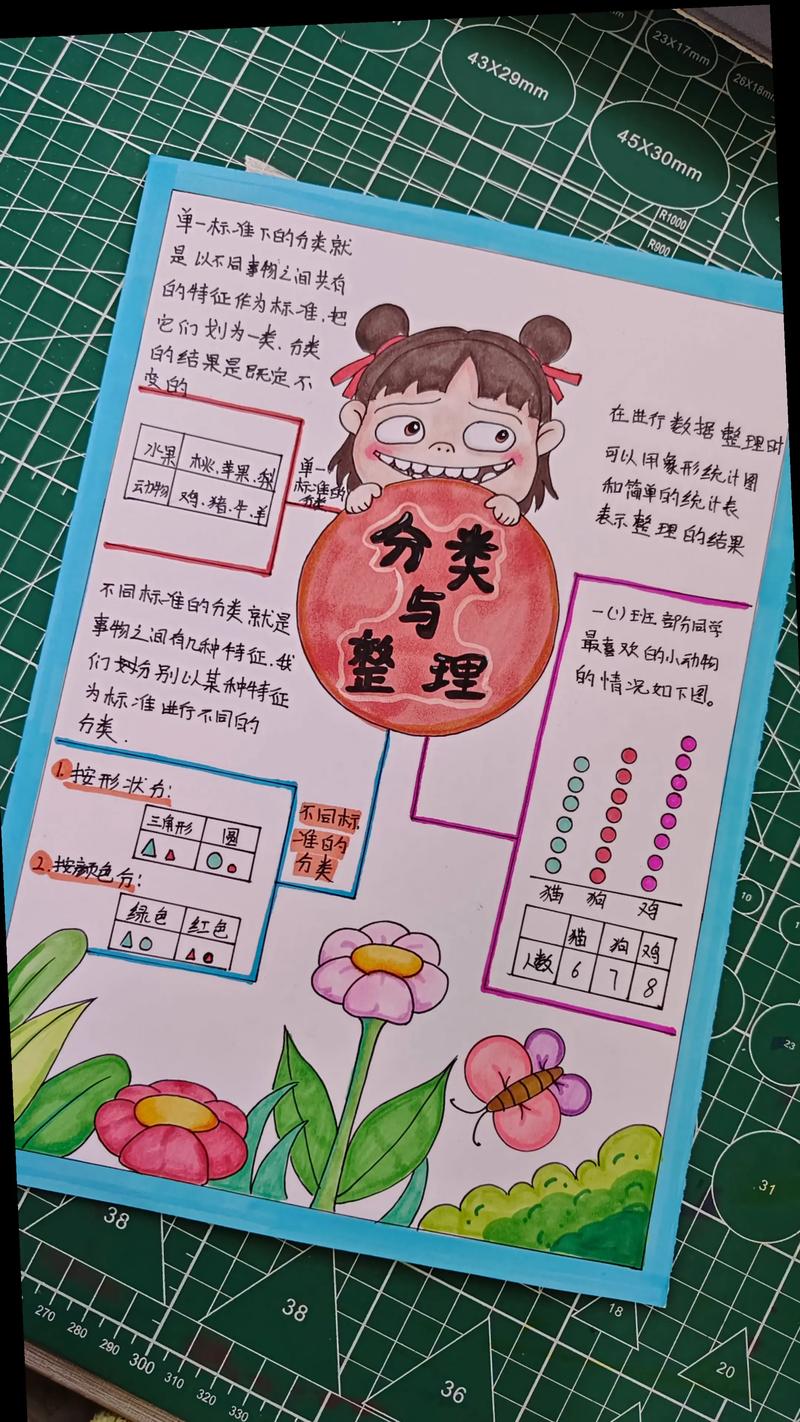 43X29mm
23X17mm
45X30mm
R1000
R900
单一标准下的分类就
是以不同事物之间共有
的特征作为标准,把
它们划为一类,分类
的结果是既定不
变的
水果 桃、苹果、梨
动物 鸡、猪、牛、羊
单一
标准的
分类
分类
与
整理
在进行数据整理时
可以用象形统计图
和简单的统计表
表示整理的结果
不同标准的分类就是
事物之间有几种特征,我
们分别以某种特征
为标准进行不同的
分类.
1.按形状分:
三角形 圆
2.按颜色分:
绿色 红色
不同标
准的
分类
一(1)班部分同学
最喜欢的小动物
的情况如下图。
猫 狗 鸡
猫 狗 鸡
人数 6 7 8
10
23
31
38
38
36
18
20
270 280 290 300 310 320 330